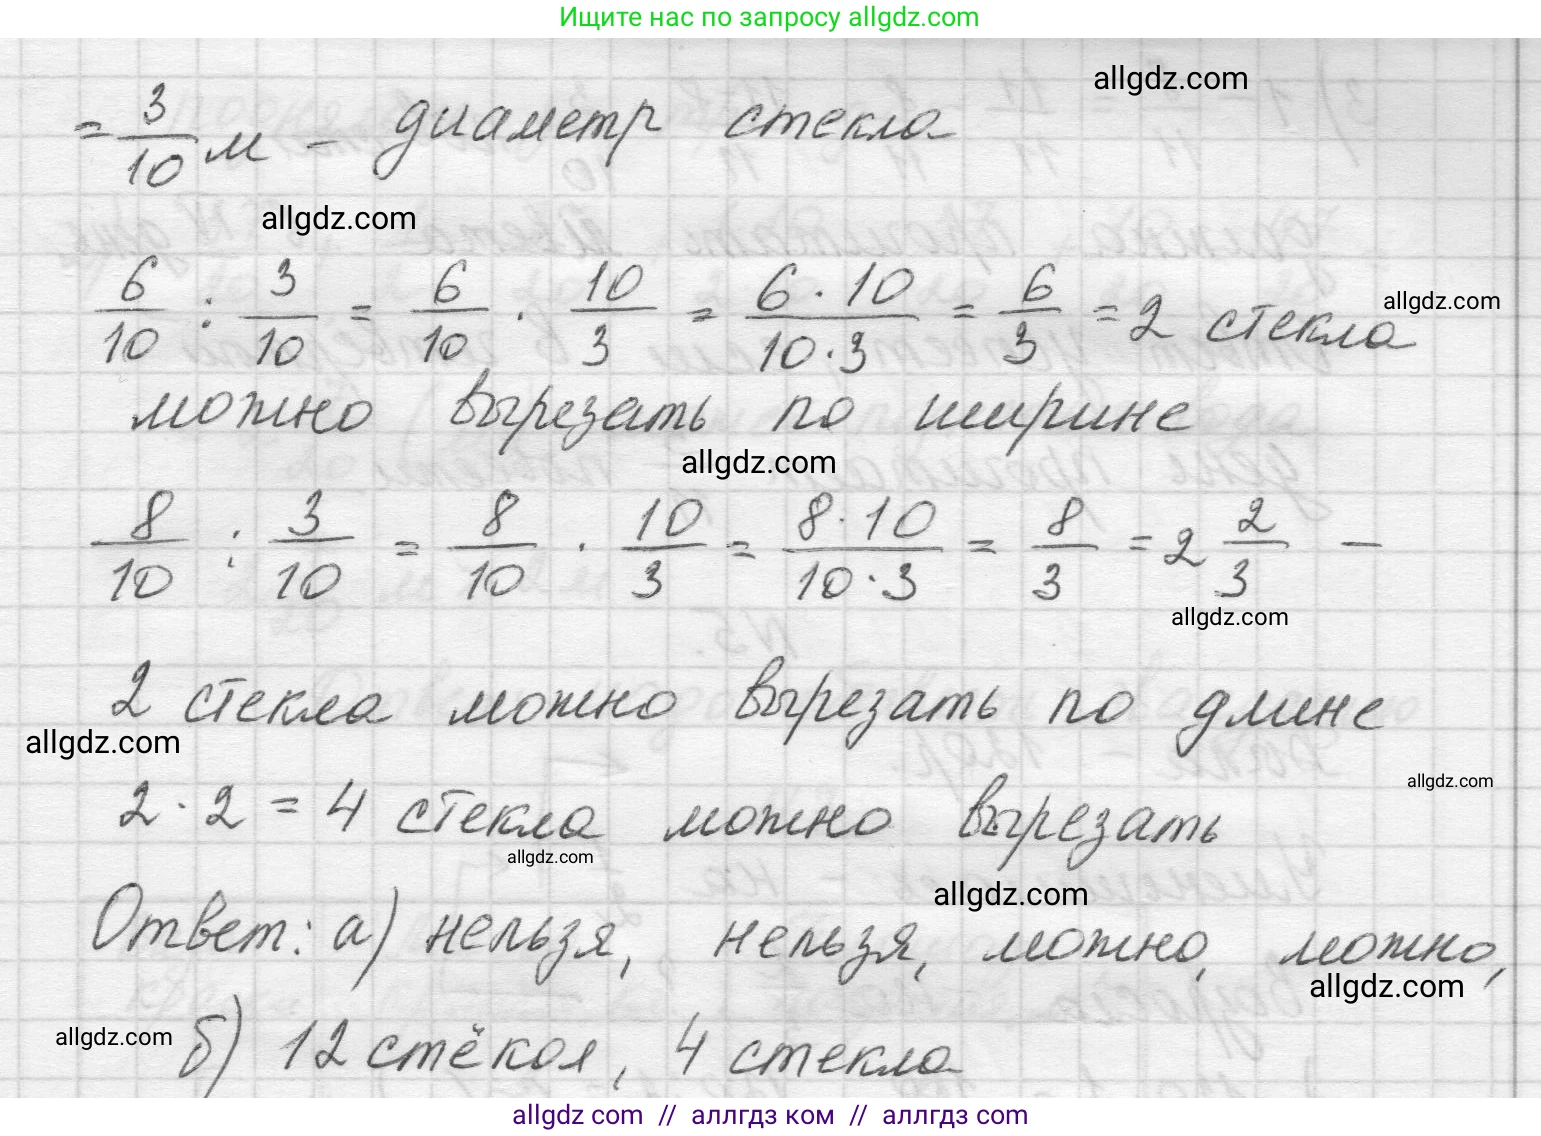 Ищите нас по запросу allgdz.com
allgdz.com
= 3/10 м – диаметр стекла
allgdz.com
6/10 : 3/10 = 6/10 · 10/3 = 6 · 10/10 · 3 = 6/3 = 2 стекла
allgdz.com
можно вырезать по ширине
allgdz.com
8/10 : 3/10 = 8/10 · 10/3 = 8 · 10/10 · 3 = 8/3 = 2 2/3 –
allgdz.com
2 стекла можно вырезать по длине
allgdz.com
allgdz.com
2 · 2 = 4 стекла можно вырезать
allgdz.com
allgdz.com
Ответ: а) нельзя, нельзя, можно, можно,
allgdz.com
allgdz.com
б) 12 стёкол, 4 стекла
allgdz.com // аллгдз ком // аллгдз com